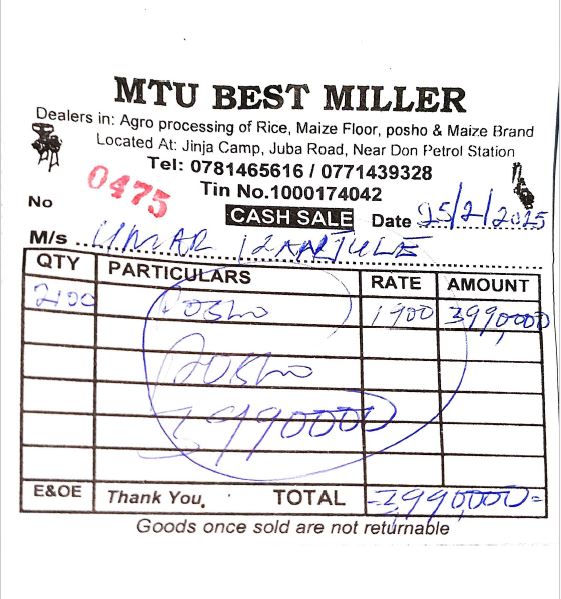 MTU BEST MILLER
Dealers in: Agro processing of Rice, Maize Floor, posho & Maize Brand
Located At: Jinja Camp, Juba Road, Near Don Petrol Station
Tel: 0781465616 / 0771439328
Tin No.1000174042
No 0475
CASH SALE Date 25/2/2025
M/s UMAR
QTY PARTICULARS RATE AMOUNT
2100 Posho 1900 3990,000
Posho
3990000
E&OE Thank You. TOTAL 3,990,000=
Goods once sold are not returnable